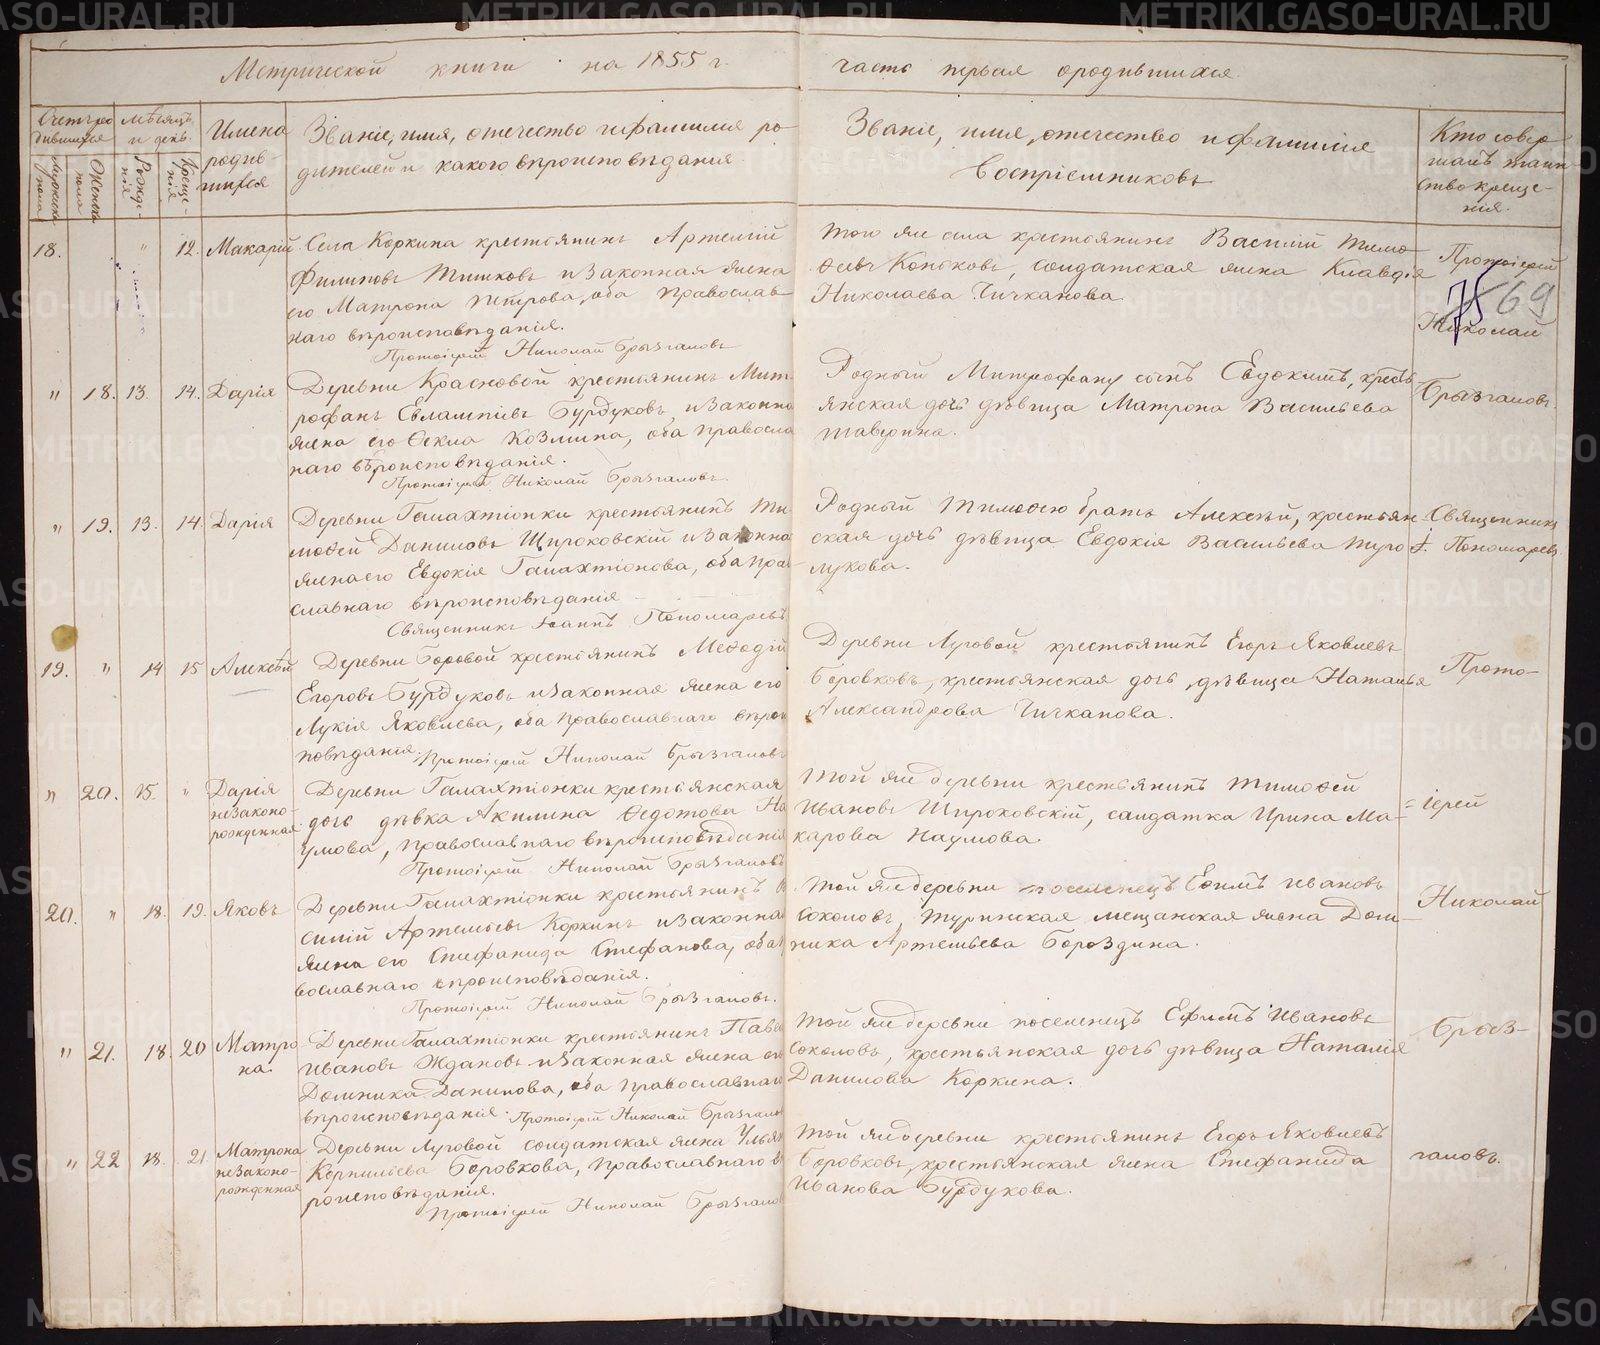 Метрической книги на 1855 г. часть первая о родившихся.
Счетъ родившихся
мѣсяцъ и день
Имена родившихся
Званіе, имя, отечество и фамилия родителей и какого вѣроисповѣданія.
Званіе, имя, отечество и фамилія
воспріемниковъ
Кто совершалъ таинство крещенія.
Мужеска пола
Женска пола
Рожденія
Крещенія
18. " 12. Макарій
Села Коркина крестьянинъ Артемій
Филиповъ Тишковъ и законная жена
его Матрона Петрова, оба православнаго вѣроисповѣданія.
Протоіерей Николай Брызгаловъ
Того же села крестьянинъ Василій Тимофеевъ Коньковъ, солдатская жена Клавдія
Николаева Чичканова.
Протоіерей
75 69
Николай
" 18. 13. 14. Дарія
Деревни Красновой крестьянинъ Митрофанъ Евлампіевъ Бурдуковъ, и законна
жена его Ѳекла Козмина, оба правосла
наго вѣроисповѣданія.
Протоіерей Николай Брызгаловъ
Родный Митрофану сынъ Евдокимъ, крестьянская дочь дѣвица Матрона Васильева
Брызгаловъ
" 19. 13. 14. Дарія
Деревни Галахтіонки крестьянинъ Тимоѳей Даниловъ Широковскій и законна
жена его Евдокія Галахтіонова, оба православнаго вѣроисповѣданія
Священникъ Іоаннъ Пономаревъ
Родный Тимоѳею братъ Алексѣй, крестьянская дочь дѣвица Евдокія Васильева
Священникъ
І. Пономаревъ
19. " 14 15 Алексѣй
Деревни Боровой крестьянинъ Меѳодій
Егоровъ Бурдуковъ и законная жена его
Лукія Яковлева, оба православнаго вѣроисповѣданія. Протоіерей Николай Брызгаловъ
Деревни Луговой крестьянинъ Егоръ Яковлевъ
Боровковъ, крестьянская дочь, дѣвица Наталья
Александрова Чичканова.
Прото-
" 20. 15. " Дарія
незаконорожденная
Деревни Галахтіонки крестьянская
дочь дѣвка Акилина Ѳедотова Наумова, православнаго вѣроисповѣданія
Протоіерей Николай Брызгаловъ
Той же деревни крестьянинъ Тимоѳей
Ивановъ Широковскій, салдатка Ирина Макарова Наумова.
=іерей
20. " 18. 19. Яковъ
Деревни Галахтіонки крестьянинъ Василій Артемьевъ Коркинъ и законна
жена его Степанида Стефанова, оба православнаго вѣроисповѣданія.
Протоіерей Николай Брызгаловъ.
Той же деревни поселенецъ Ефимъ Ивановъ
Соколовъ, Туринская мещанская жена Домника Артемьева Бороздина.
Николай
" 21. 18. 20 Матрона.
Деревни Галахтіонки крестьянинъ Павелъ
Ивановъ Ждановъ и законная жена его
Домника Данилова, оба православнаго
вѣроисповѣданія. Протоіерей Николай Брызгаловъ
Той же деревни поселенецъ Ефимъ Ивановъ
Соколовъ, крестьянская дочь дѣвица Наталія
Данилова Коркина.
Брыз-
" 22 18. 21 Матрона
незаконорожденная
Деревни Луговой солдатская жена Ульяна
Корнильева Боровкова, православнаго вѣроисповѣданія.
Протоіерей Николай Брызгаловъ
Той же деревни крестьянинъ Егоръ Яковлевъ
Боровковъ, крестьянская жена Стефанида
Иванова Бурдукова.
галовъ.
METRIKI.GASO-URAL.RU